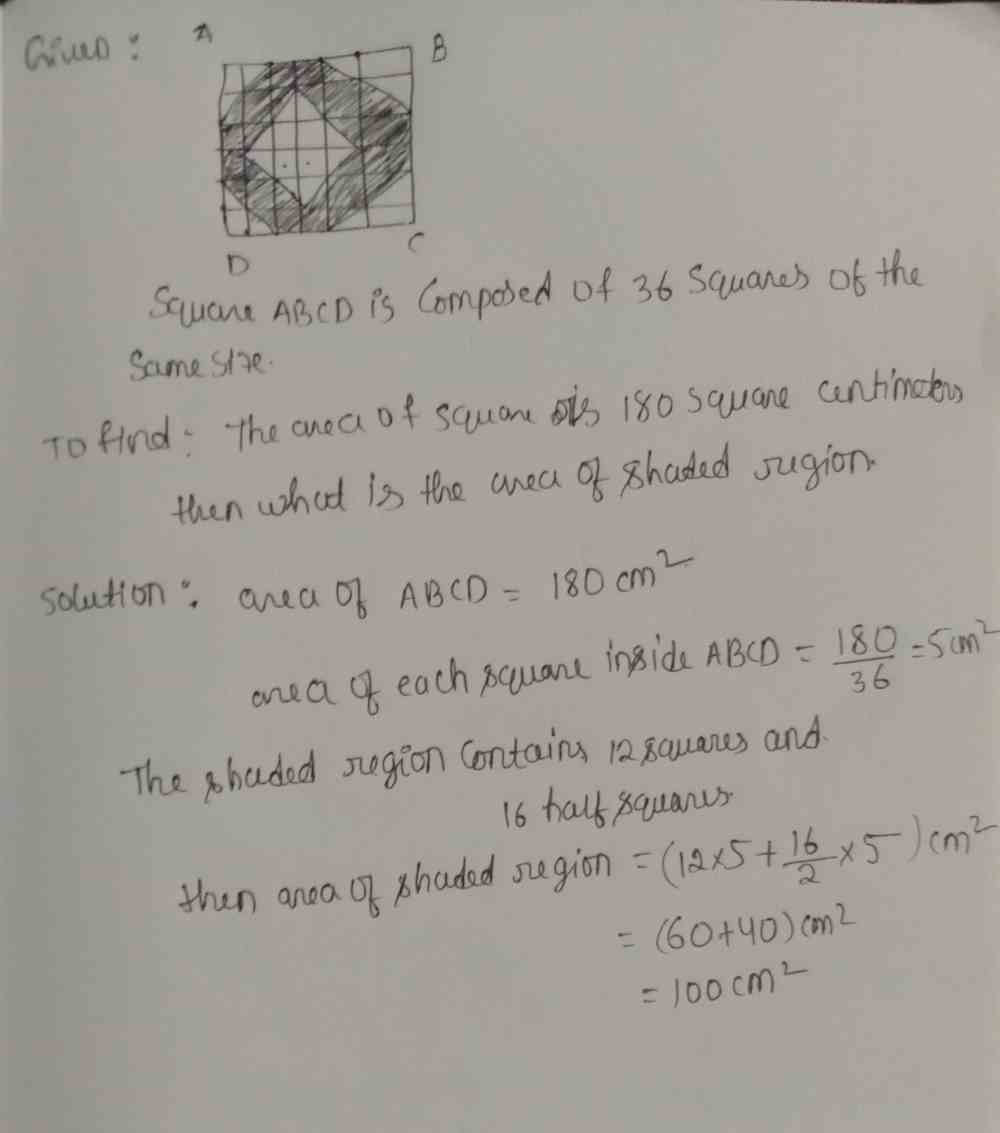 Given :
A
B
C
D
Square ABCD is Composed of 36 Squares of the
Same size.
To find : The area of square is 180 square centimeters
then what is the area of shaded region.
Solution : area of ABCD = 180 cm²
area of each square inside ABCD = 180/36 = 5 cm²
The shaded region Contains 12 squares and
16 half squares
then area of shaded region = (12×5 + 16/2 ×5) cm²
= (60+40) cm²
= 100 cm²